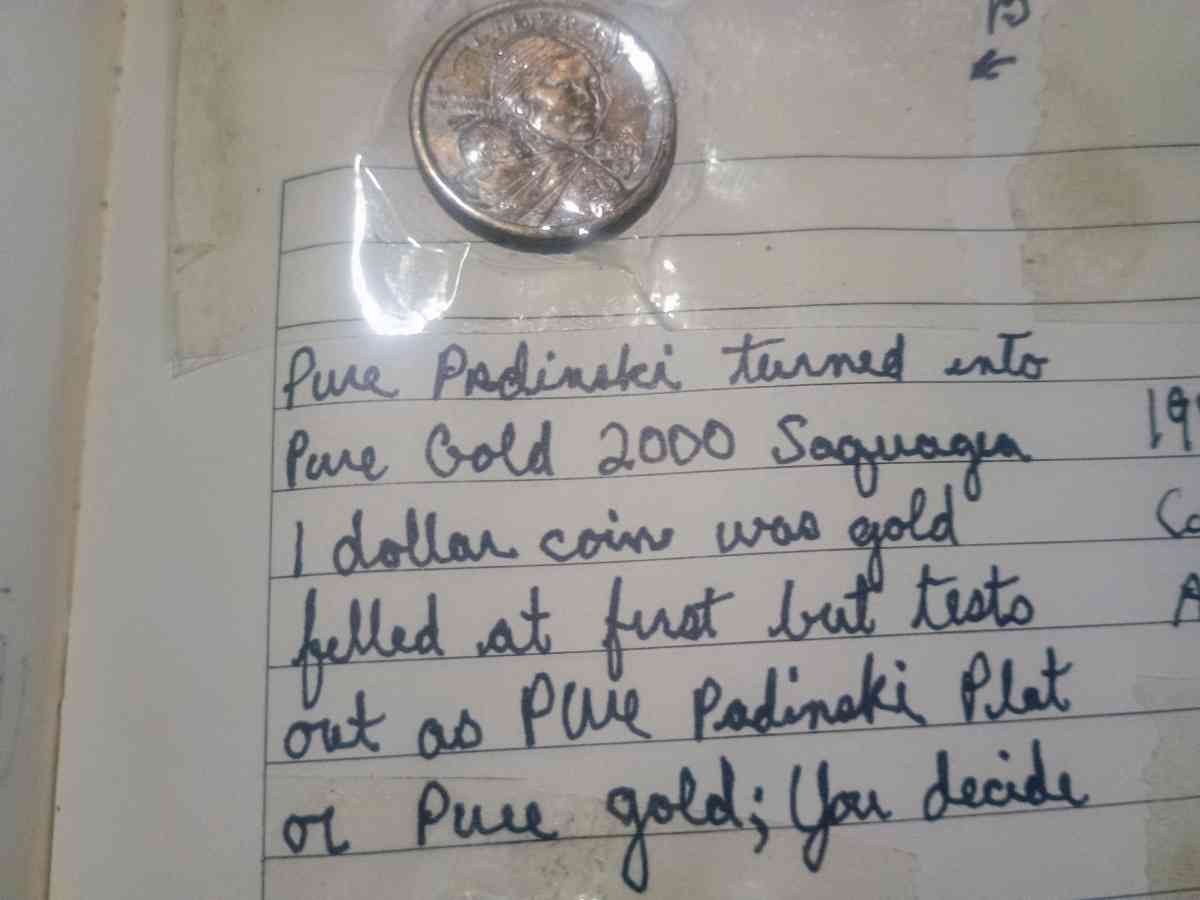 Pure Padinski turned into
Pure Gold 2000 Saquagea
1 dollar coin was gold
felled at first but tests
out as Pure Padinski Plat
or Pure gold; You decide